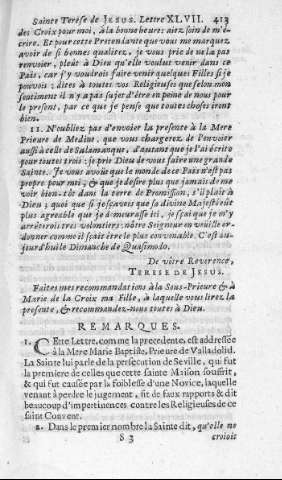 Sainte Terése de JESUS. Lettre XLVII. 413
des Croix pour moi, à la bonne heure: aiez soin de m'e-
crire. Et pour cette Pretendante que vous me marquez
avoir de si bonnes qualitez, je vous prie de ne la pas
renvoier, pleût à Dieu qu'elle voulut venir dans ce
Païs, car j'y voudrois faire venir quelques Filles si je
pouvois: dites à toutes vos Religieuses que selon mon
sentiment il n'y a pas sujet d'être en peine de nous pour
le present, par ce que je pense que toutes choses iront
bien.
11. N'oubliez pas d'envoier la presente à la Mere
Prieure de Medine, que vous chargerez de l'envoier
aussi à celle de Salamanque, d'autant que je l'ai écrito
pour toutes trois: je prie Dieu de vous faire une grande
Sainte. Je vous avoüe que le monde de ce Païs n'est pas
propre pour moi, & que je desire plus que jamais de me
voir bien-tôt dans la terre de Promission, s'il plaît à
Dieu; quoi que si je sçavois que sa divine Majesté eut
plus agreable que je demeurasse ici, je sçai que je m'y
arrêterois tres volontiers; nôtre Seigneur en veuille or-
donner comme il sçait être le plus convenable. C'est au-
jourd'hui le Dimanche de Quasimodo.
De vôtre Reverence,
TERESE DE JESUS.
Faites mes recommandations à la Sous-Prieure & à
Marie de la Croix ma Fille, à laquelle vous lirez la
presente, & recommandez-nous toutes à Dieu.
REMARQUES.
1. CEtte Lettre, comme la precedente, est addressée
à la Mere Marie Baptiste, Prieure de Valladolid.
La Sainte lui parle de la persecution de Seville, qui fut
la premiere de celles que cette sainte Maison souffrit,
& qui fut causée par la foiblesse d'une Novice, laquelle
venant à perdre le jugement, fit de faux rapports & dit
beaucoup d'impertinences contre les Religieuses de ce
saint Convent.
2. Dans le premier nombre la Sainte dit, qu'elle ne
S 3 croioit